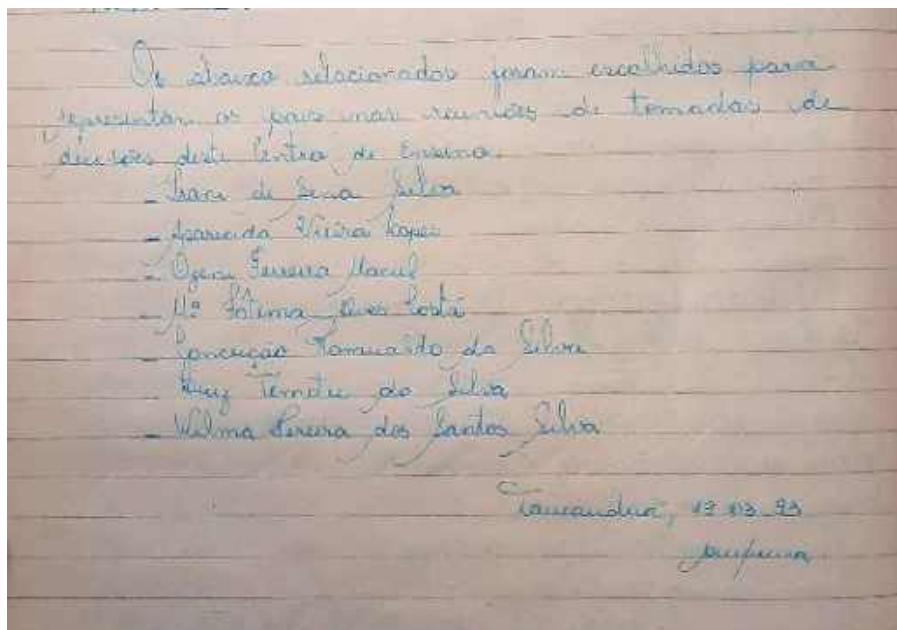 Os abaixo relacionados foram escolhidos para
representar os pais nas reuniões de tomadas de
decisões deste Centro de Ensino.
- Irani de Sena Silva
- Aparecida Vieira Lopes
- Ozeni Ferreira Maciel
- Mª Fátima Alves Costa
- Conceição Romualdo da Silva
- da Silva
- Wilma Pereira dos Santos Silva
93